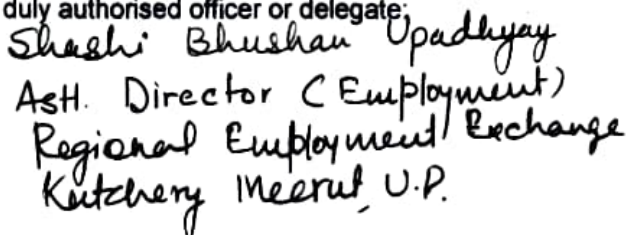 duly authorised officer or delegate:
Shashi Bhushan Upadhyay
Asst. Director (Employment)
Regional Employment Exchange
Kutchery Meerut, U.P.